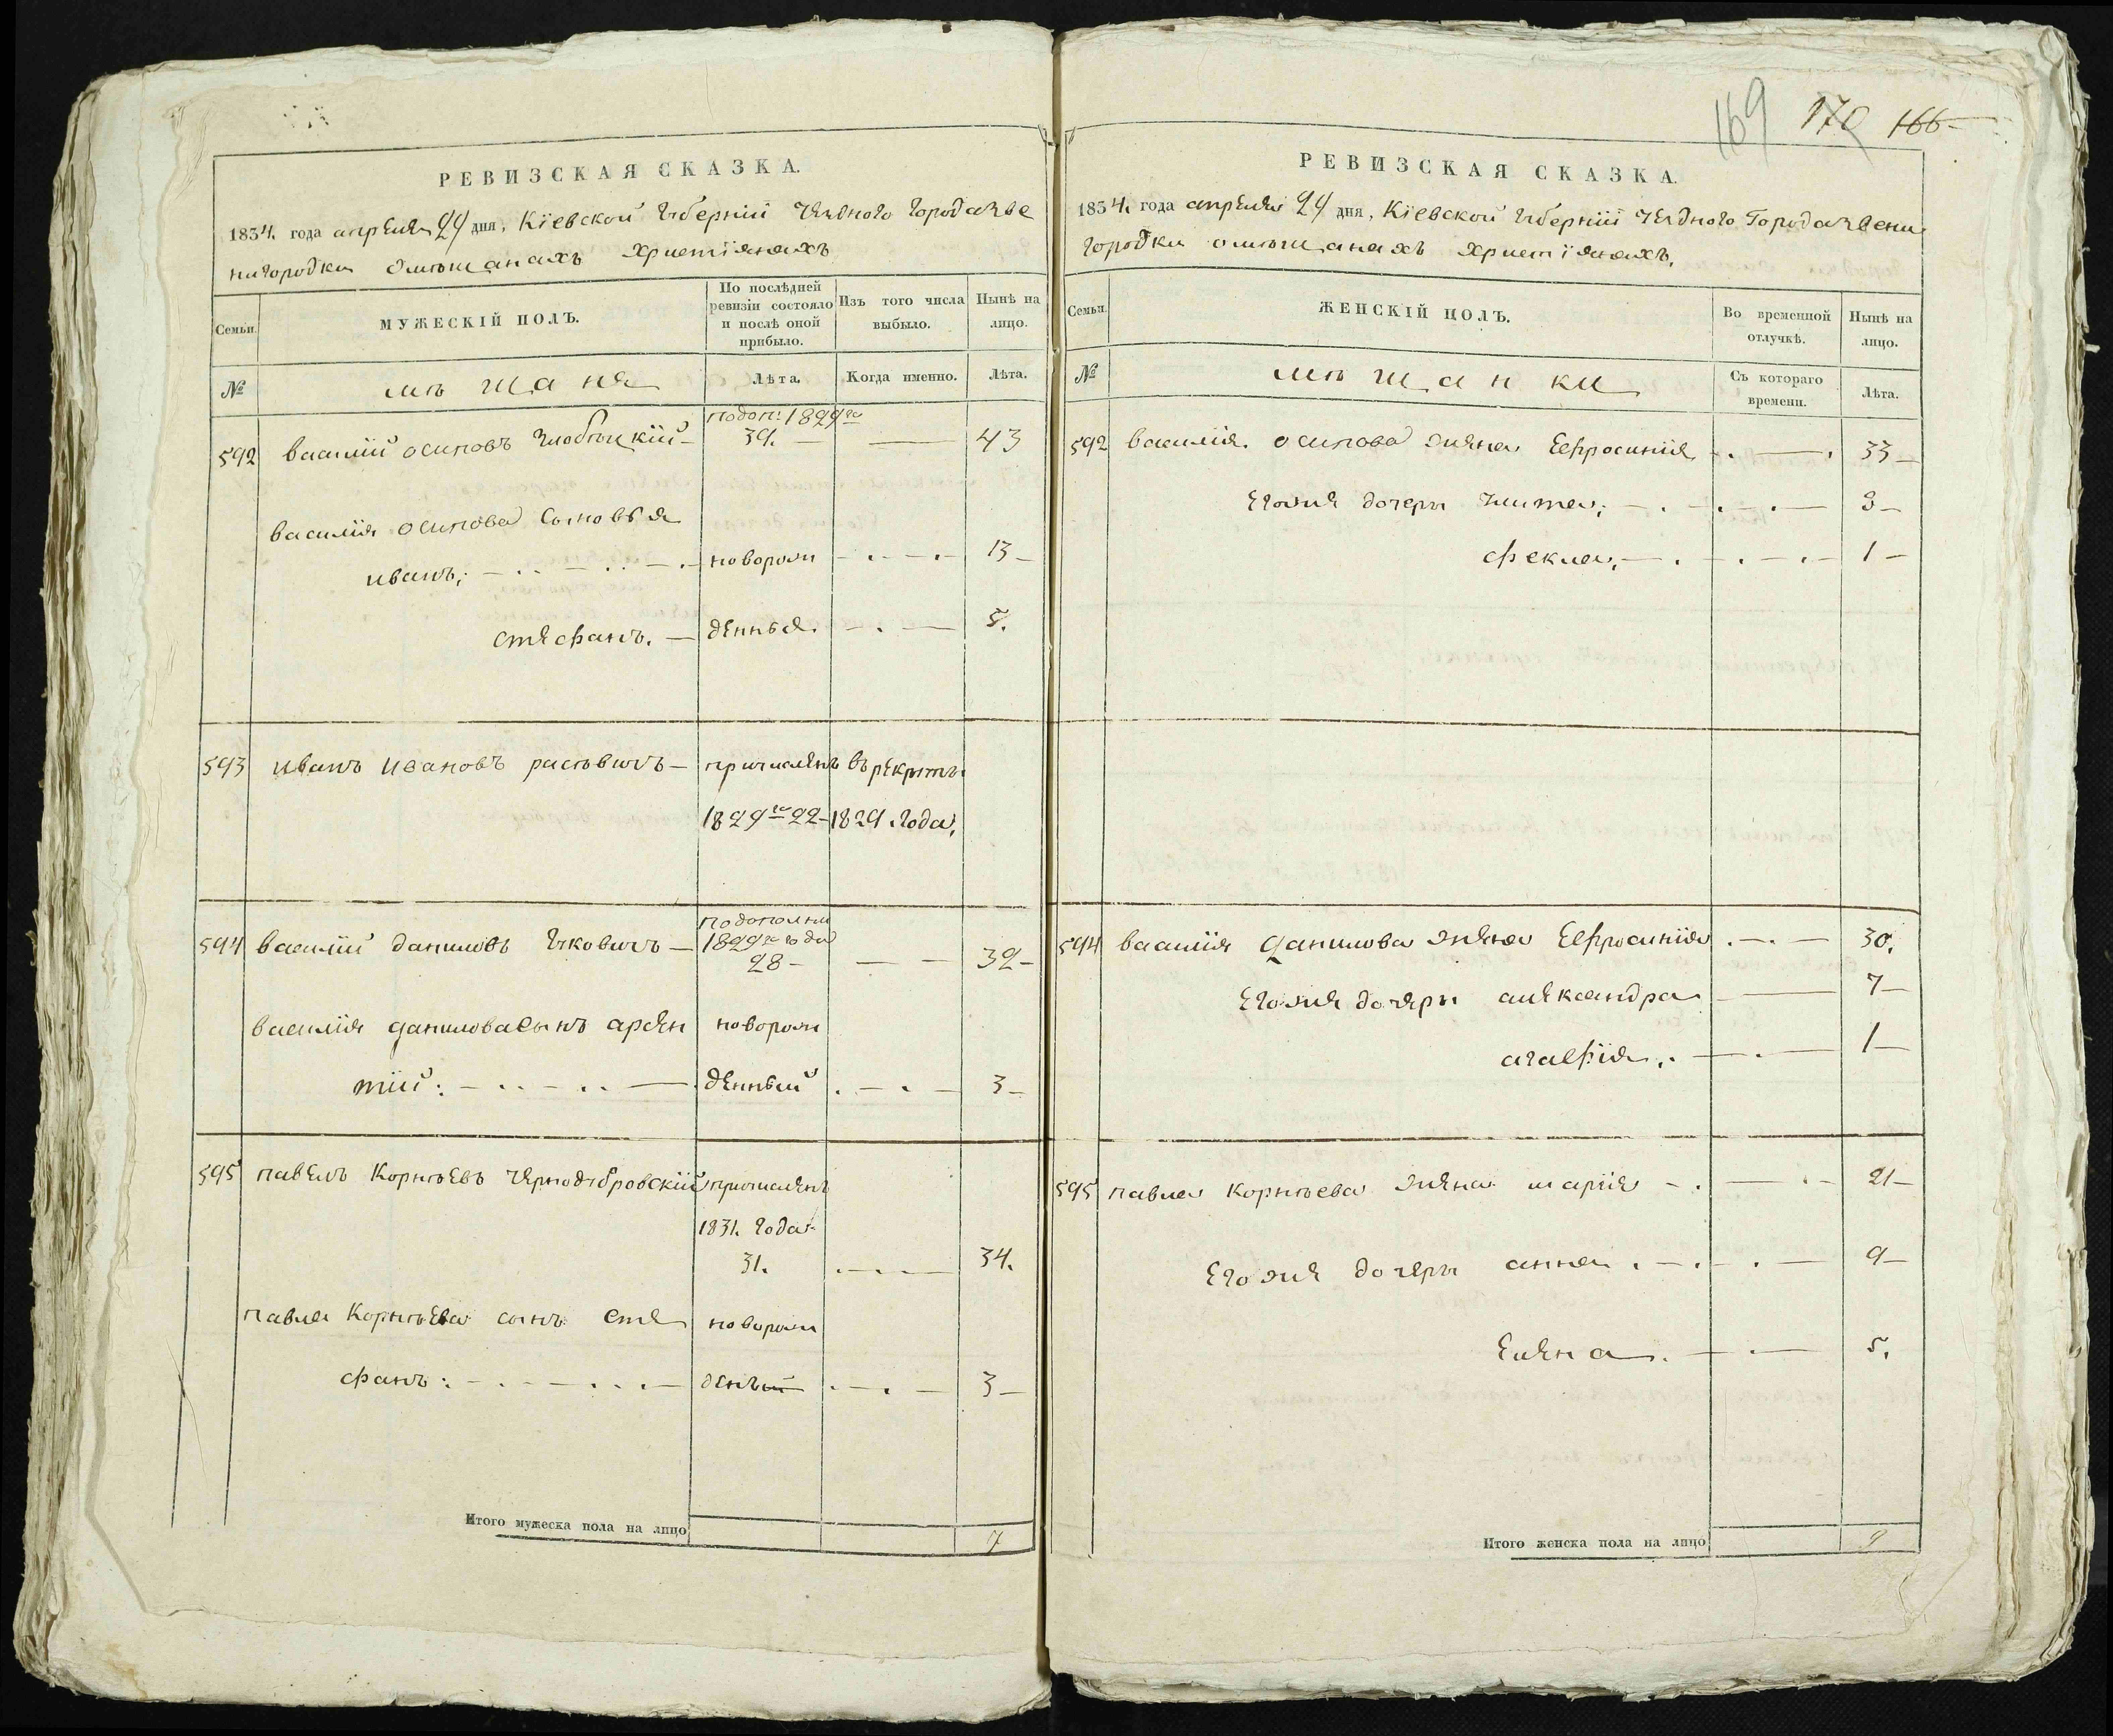 169 170 166
РЕВИЗСКАЯ СКАЗКА.
1834. года апреля 24 дня, Кіевской губерніи уезднаго города Зве
нигородки о мѣщанахъ христіянахъ
Семьи. МУЖЕСКІЙ ПОЛЪ. По послѣдней ревизіи состояло и послѣ оной прибыло. Изъ того числа выбыло. Нынѣ на лицо.
№ мѣщане Лѣта. Когда именно. Лѣта.
592 василій осиповъ подоп: 1829го 39. — 43
василія осипова сыновья
иванъ; новорож 13
стефанъ. денныя. 5.
593 иванъ ивановъ причисленъ въ рекруты
1829го 22 1829 года,
594 василій даниловъ Гуковичъ подополни 1829го года 28 — 32
василія данилова сынъ арсен новорож
тій: денный 3
595 павелъ Корнѣевъ чернодубровскій причисленъ
1831. года
31. 34.
павла Корнѣева сынъ сте новорож
фанъ: деный 3
Итого мужеска пола на лицо 7
РЕВИЗСКАЯ СКАЗКА.
1834. года апреля 24 дня, Кіевской губерніи уезднаго города Звени
городки о мѣщанахъ христіянахъ.
Семьи. ЖЕНСКІЙ ПОЛЪ. Во временной отлучкѣ. Нынѣ на лицо.
№ мѣщанки Съ котораго времени. Лѣта.
592 василія осипова жена Евфросинія 33
Егоже дочери 3
фекла, 1
594 василія данилова жена Евфросинія 30.
Егоже дочери александра 7
агафія. 1
595 павла Корнѣева жена марія 21
Егоже дочери анна 9
Елена 5.
Итого женска пола на лицо 9